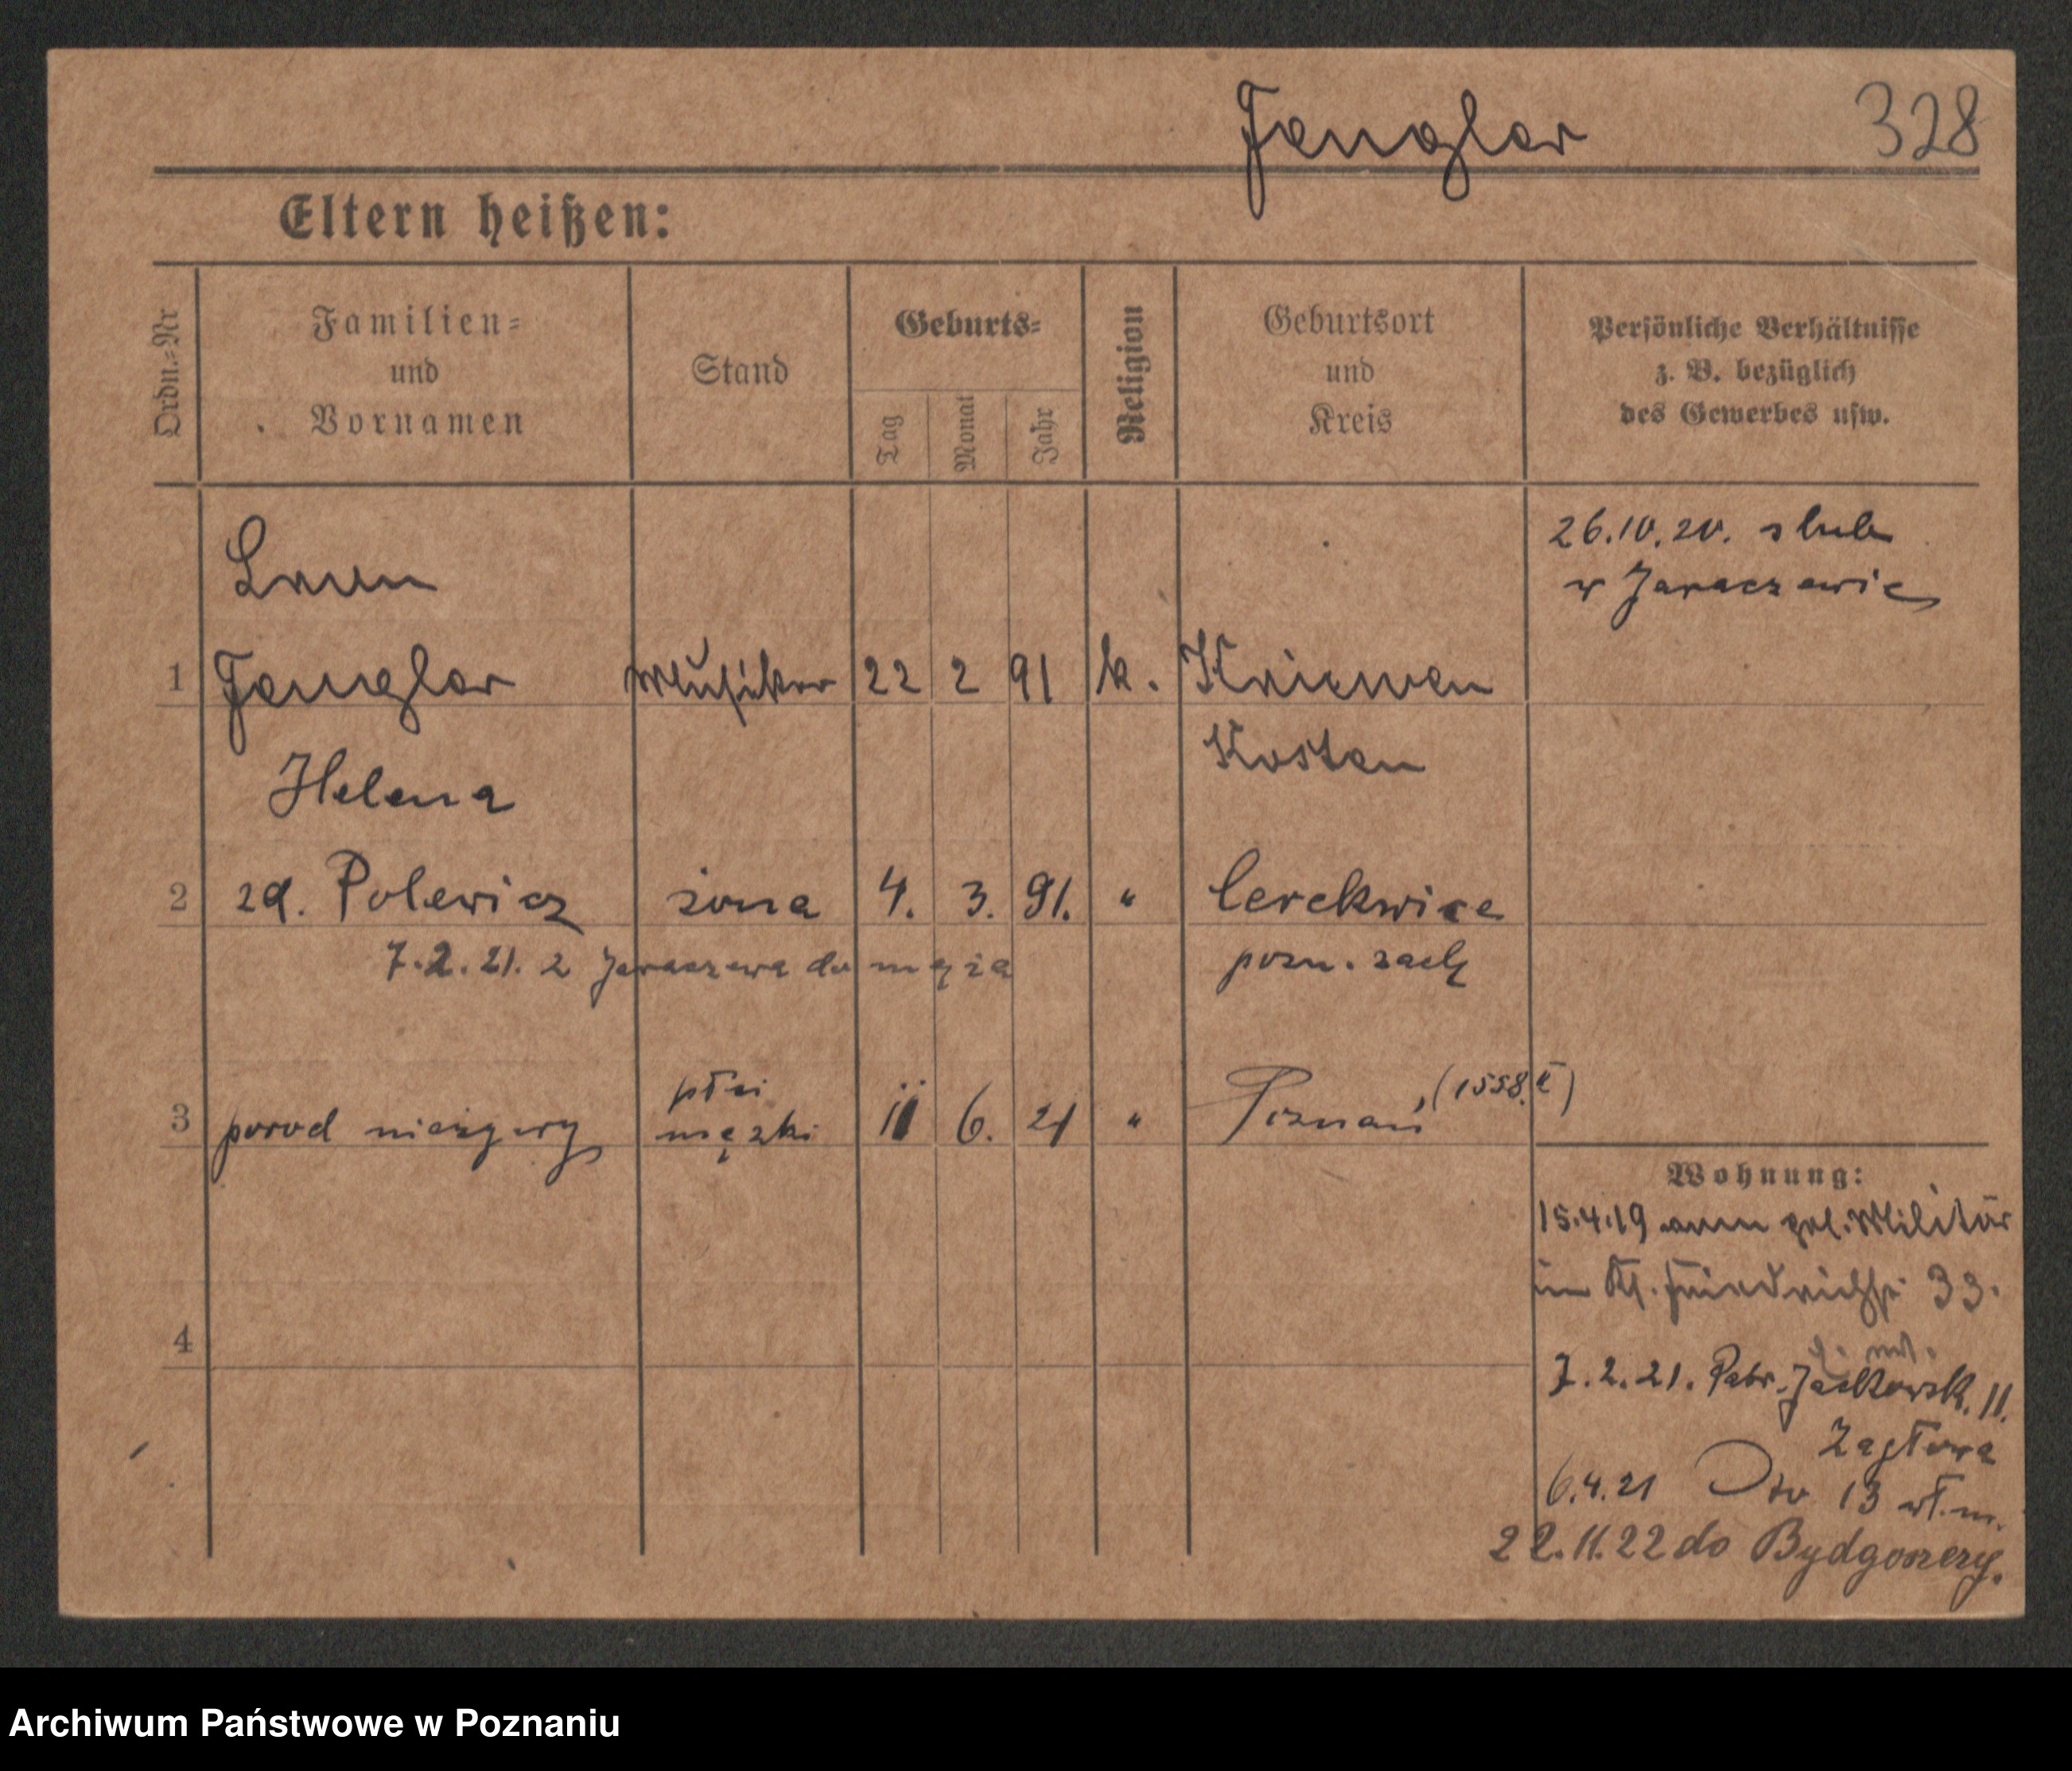 Fengler
328
Eltern heißen:
Ordn.-Nr
Familien-
und
Vornamen
Stand
Geburts-
Tag
Monat
Jahr
Religion
Geburtsort
und
Kreis
Persönliche Verhältnisse
z. B. bezüglich
des Gewerbes usw.
26.10.20. slub
w Jaraczewie
Leon
1 Fengler Musiker 22 2 91 k. Kriewen
Kosten
Helena
2 zd. Polewicz żona 4. 3. 91. " Cerekwica
7.2.21. z Jaraczewa do męża
pozn. zach
płci
3 porod nieżywy męzki 11 6. 21 " Poznań, (1558. II)
Wohnung:
15.4.19 pol. Militär
im Kl. 33.
4
7.2.21. Jackowsk. 11.
6.4.21 13 wł. m.
22.11.22 do Bydgoszczy.
Archiwum Państwowe w Poznaniu